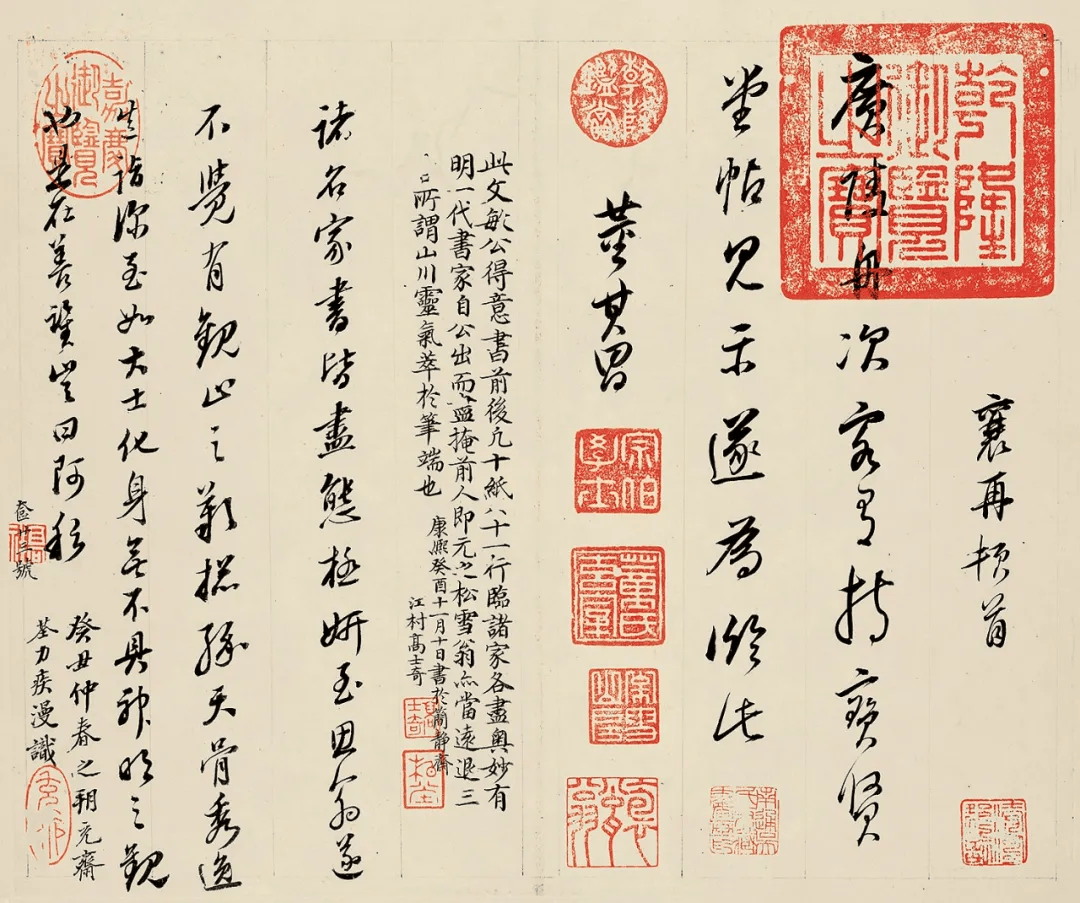 襄再頓首
乾隆御覽之寶
廣陵舟次客有持寶賢
堂帖見示遂為臨此
乾隆鑑賞
董其昌
宗伯學士
此文敏公得意書前後凡十紙八十一行臨諸家各盡奧妙有
明一代書家自公出而盡掩前人即元之松雪翁亦當遠退三
所謂山川靈氣萃於筆端也
康熙癸酉十一月十日書於簡靜齋
江村高士奇
士奇
諸名家書皆盡態極妍至思翁遂
不覺有觀止之歎搃緣天骨秀逸
造詣深至如大士化身無不具神明之觀
嘉慶御覽之寶
在善豈曰阿私
癸丑仲春之朔充齋
荃力疾漫識
廿三號